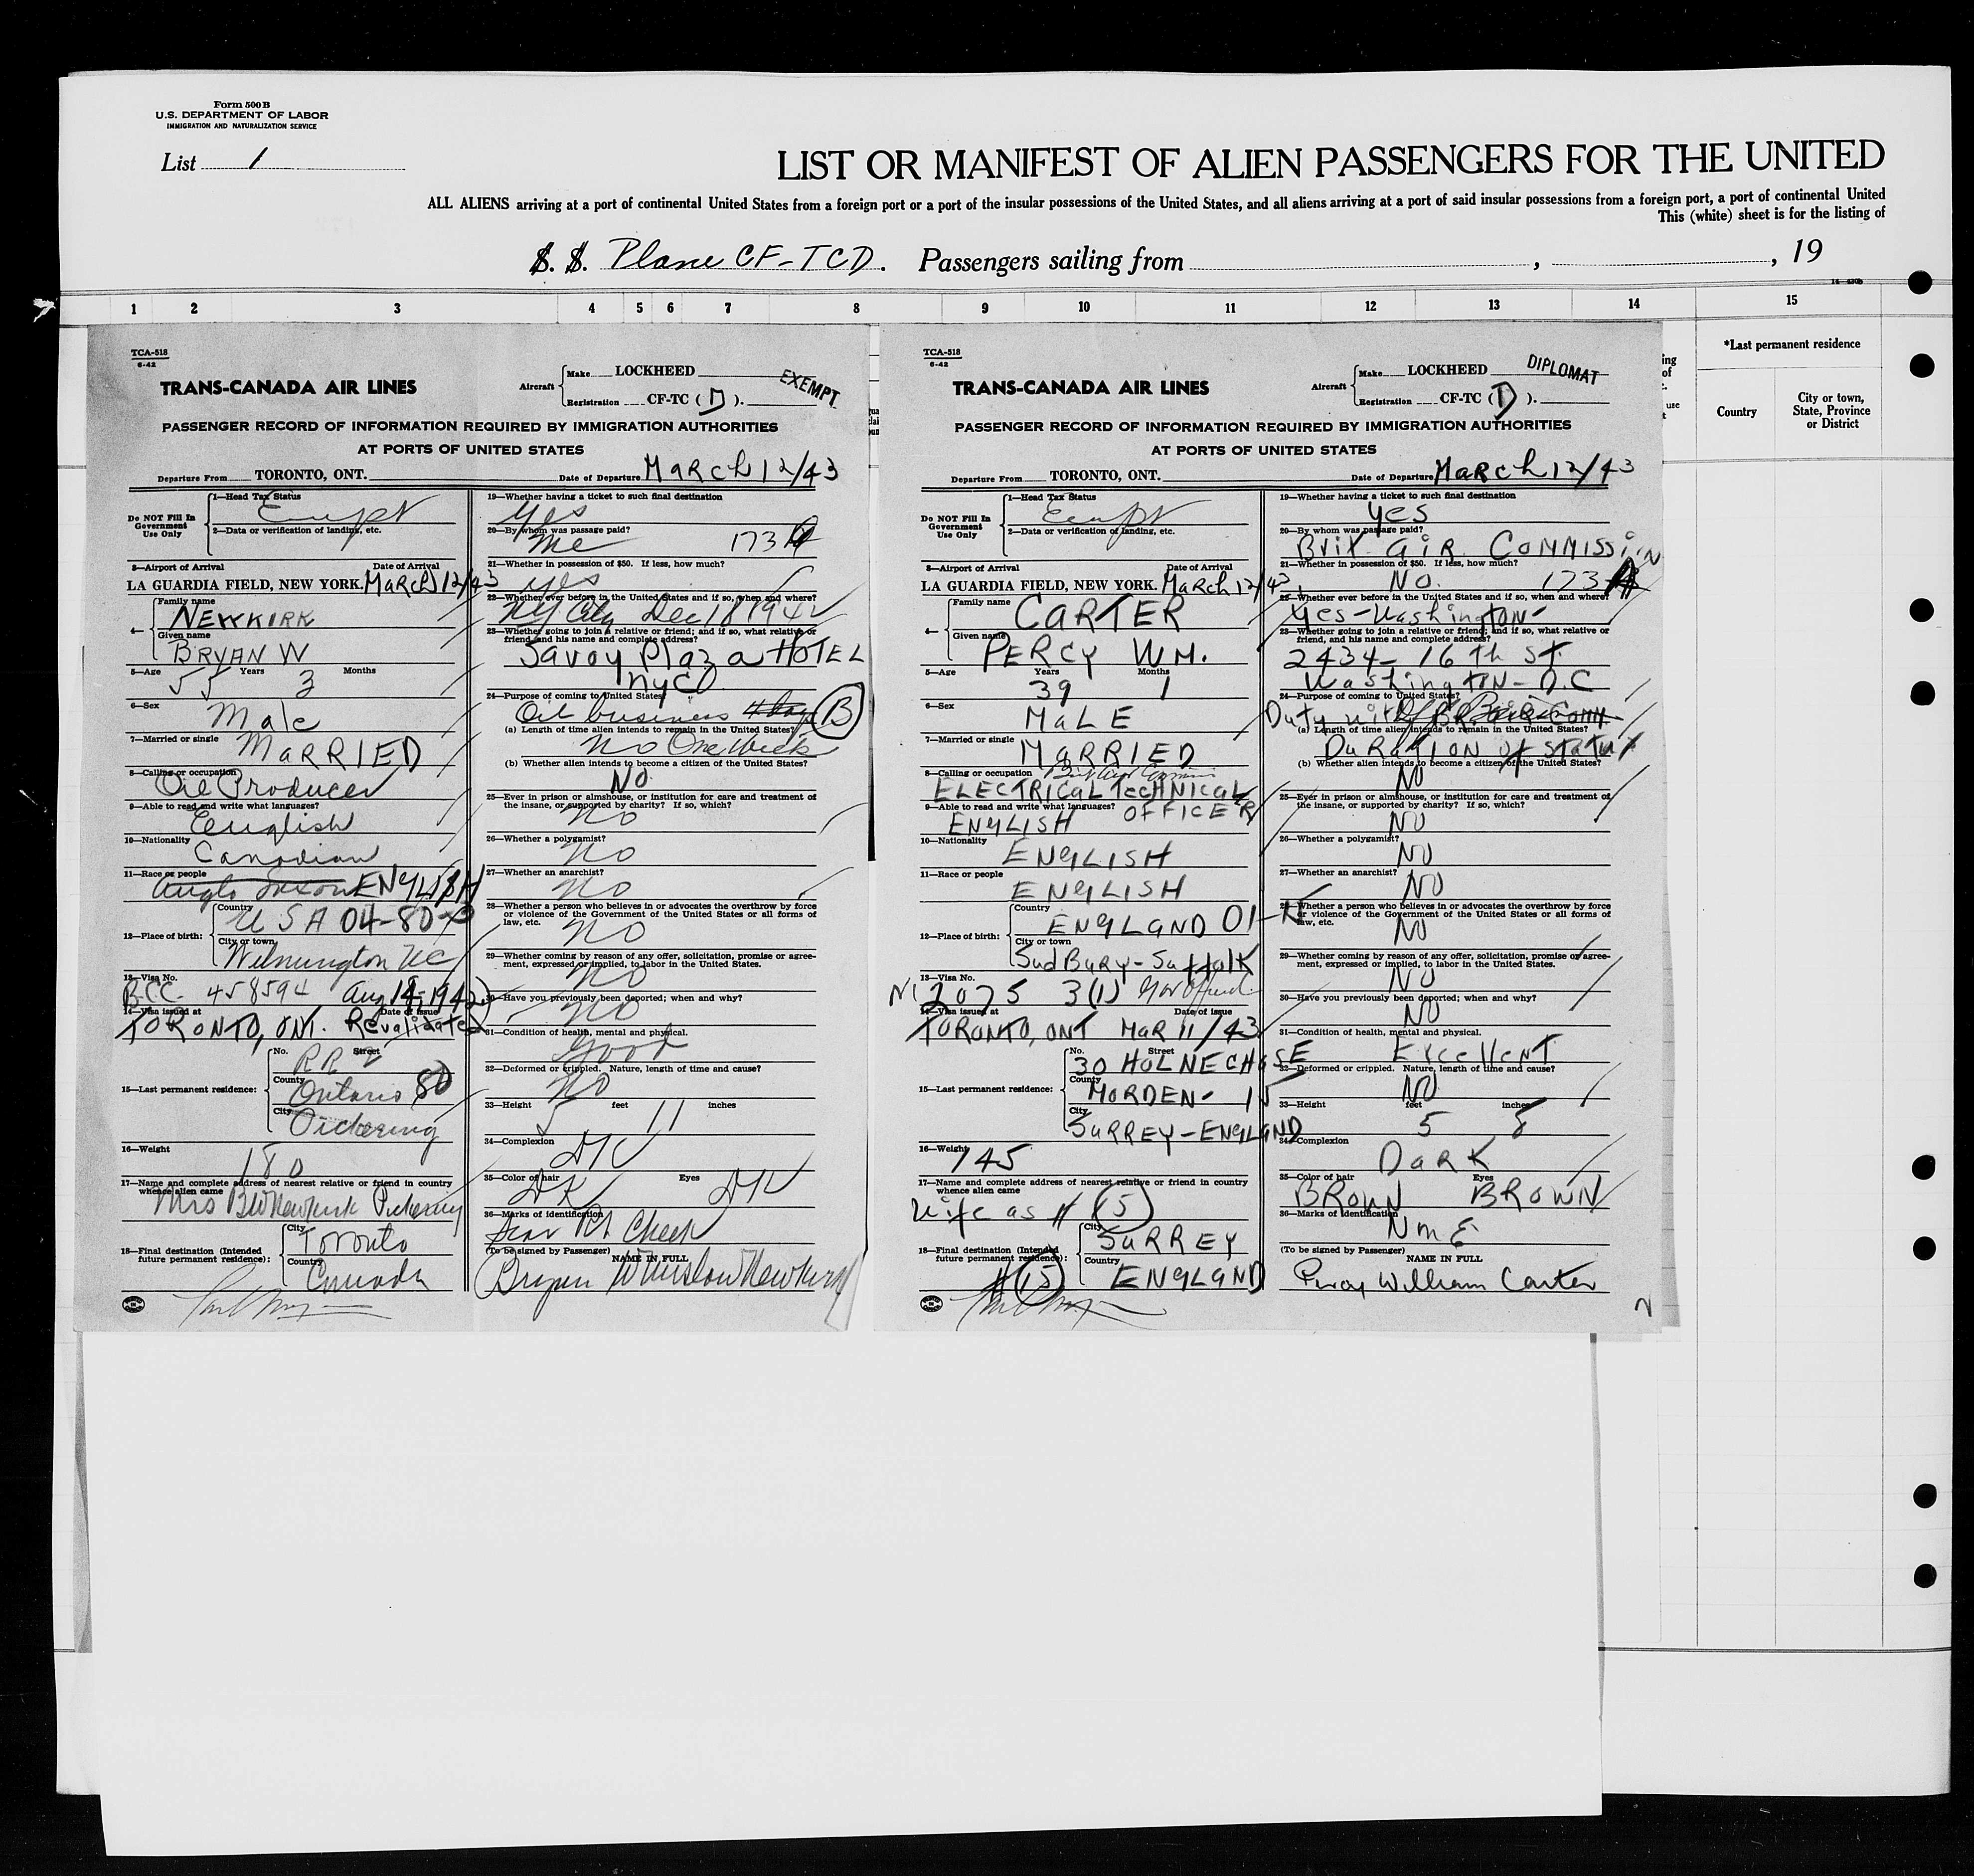 Form 500B
U.S. DEPARTMENT OF LABOR
IMMIGRATION AND NATURALIZATION SERVICE
List 1
LIST OR MANIFEST OF ALIEN PASSENGERS FOR THE UNITED
ALL ALIENS arriving at a port of continental United States from a foreign port or a port of the insular possessions of the United States, and all aliens arriving at a port of said insular possessions from a foreign port, a port of continental United
This (white) sheet is for the listing of
S. S. Plane CF-TCD. Passengers sailing from , , 19
1 2 3 4 5 6 7 8 9 10 11 12 13 14 15
*Last permanent residence
Country
City or town,
State, Province
or District
TCA-518
6-42
TRANS-CANADA AIR LINES
Aircraft
Make LOCKHEED
Registration CF-TC ( D ).
EXEMPT
PASSENGER RECORD OF INFORMATION REQUIRED BY IMMIGRATION AUTHORITIES
AT PORTS OF UNITED STATES
Departure From TORONTO, ONT. Date of Departure MARCH 12/43
Do NOT Fill In
Government
Use Only
1—Head Tax Status
Exempt
2—Data or verification of landing, etc.
3—Airport of Arrival Date of Arrival
LA GUARDIA FIELD, NEW YORK. MARCH 12/43
4— Family name
NEWKIRK
Given name
BRYAN W
5—Age Years Months
55 3
6—Sex
Male
7—Married or single
MARRIED
8—Calling or occupation
Oil Producer
9—Able to read and write what languages?
English
10—Nationality
Canadian
11—Race or people
Anglo Saxon ENGLISH
12—Place of birth:
Country
USA 04-80
City or town
Wilmington NC
13—Visa No.
BCC 458594 Aug 18, 1942
14—Visa issued at Date of issue
TORONTO, ONT. Revalidated
15—Last permanent residence:
No. Street
RR 2
County
Ontario 80
City
Pickering
16—Weight
180
17—Name and complete address of nearest relative or friend in country
whence alien came
Mrs BW Newkirk Pickering
18—Final destination (Intended
future permanent residence):
City
Toronto
Country
Canada
19—Whether having a ticket to such final destination
Yes
20—By whom was passage paid?
Me 173
21—Whether in possession of $50. If less, how much?
Yes
22—Whether ever before in the United States and if so, when and where?
NY City Dec 18 1942
23—Whether going to join a relative or friend; and if so, what relative or
friend and his name and complete address?
Savoy Plaza HOTEL
NYC
24—Purpose of coming to United States?
Oil business B
(a) Length of time alien intends to remain in the United States?
No One Week
(b) Whether alien intends to become a citizen of the United States?
NO
25—Ever in prison or almshouse, or institution for care and treatment of
the insane, or supported by charity? If so, which?
No
26—Whether a polygamist?
No
27—Whether an anarchist?
No
28—Whether a person who believes in or advocates the overthrow by force
or violence of the Government of the United States or all forms of
law, etc.
No
29—Whether coming by reason of any offer, solicitation, promise or agree-
ment, expressed or implied, to labor in the United States.
No
30—Have you previously been deported; when and why?
No
31—Condition of health, mental and physical.
Good
32—Deformed or crippled. Nature, length of time and cause?
No
33—Height feet inches
5 11
34—Complexion
DK
35—Color of hair Eyes
DK DK
36—Marks of identification
Scar Rt Cheek
(To be signed by Passenger) NAME IN FULL
Bryan Winslow Newkirk
TCA-518
6-42
TRANS-CANADA AIR LINES
Aircraft
Make LOCKHEED
Registration CF-TC ( D ).
DIPLOMAT
PASSENGER RECORD OF INFORMATION REQUIRED BY IMMIGRATION AUTHORITIES
AT PORTS OF UNITED STATES
Departure From TORONTO, ONT. Date of Departure MARCH 12/43
Do NOT Fill In
Government
Use Only
1—Head Tax Status
Exempt
2—Data or verification of landing, etc.
3—Airport of Arrival Date of Arrival
LA GUARDIA FIELD, NEW YORK. March 12/43
4— Family name
CARTER
Given name
PERCY WM.
5—Age Years Months
39 1
6—Sex
MALE
7—Married or single
MARRIED
8—Calling or occupation
ELECTRICAL TECHNICAL
9—Able to read and write what languages? OFFICER
ENGLISH
10—Nationality
ENGLISH
11—Race or people
ENGLISH
12—Place of birth:
Country
ENGLAND 01-K
City or town
SUDBURY-SUFFOLK
13—Visa No.
NI 2075 3(1) Gov Official
14—Visa issued at Date of issue
TORONTO, ONT MAR 11/43
15—Last permanent residence:
No. Street
30 HOLNE CHASE
County
MORDEN- 15
City
SURREY-ENGLAND
16—Weight
145
17—Name and complete address of nearest relative or friend in country
whence alien came
Wife as # 15
18—Final destination (Intended
future permanent residence):
# 15
City
SURREY
Country
ENGLAND
19—Whether having a ticket to such final destination
Yes
20—By whom was passage paid?
Brit. AIR COMMISSION
21—Whether in possession of $50. If less, how much?
NO. 173
22—Whether ever before in the United States and if so, when and where?
Yes-Washington-
23—Whether going to join a relative or friend; and if so, what relative or
friend, and his name and complete address?
2434- 16th St
Washington-D.C
24—Purpose of coming to United States?
Duty with BR. AIR COMM.
(a) Length of time alien intends to remain in the United States?
DURATION of status
(b) Whether alien intends to become a citizen of the United States?
NO
25—Ever in prison or almshouse, or institution for care and treatment of
the insane, or supported by charity? If so, which?
NO
26—Whether a polygamist?
NO
27—Whether an anarchist?
NO
28—Whether a person who believes in or advocates the overthrow by force
or violence of the Government of the United States or all forms of
law, etc.
NO
29—Whether coming by reason of any offer, solicitation, promise or agree-
ment, expressed or implied, to labor in the United States.
NO
30—Have you previously been deported; when and why?
NO
31—Condition of health, mental and physical.
Excellent
32—Deformed or crippled. Nature, length of time and cause?
NO
33—Height feet inches
5 8
34—Complexion
DARK
35—Color of hair Eyes
BROWN BROWN
36—Marks of identification
(To be signed by Passenger) NAME IN FULL
Percy William Carter